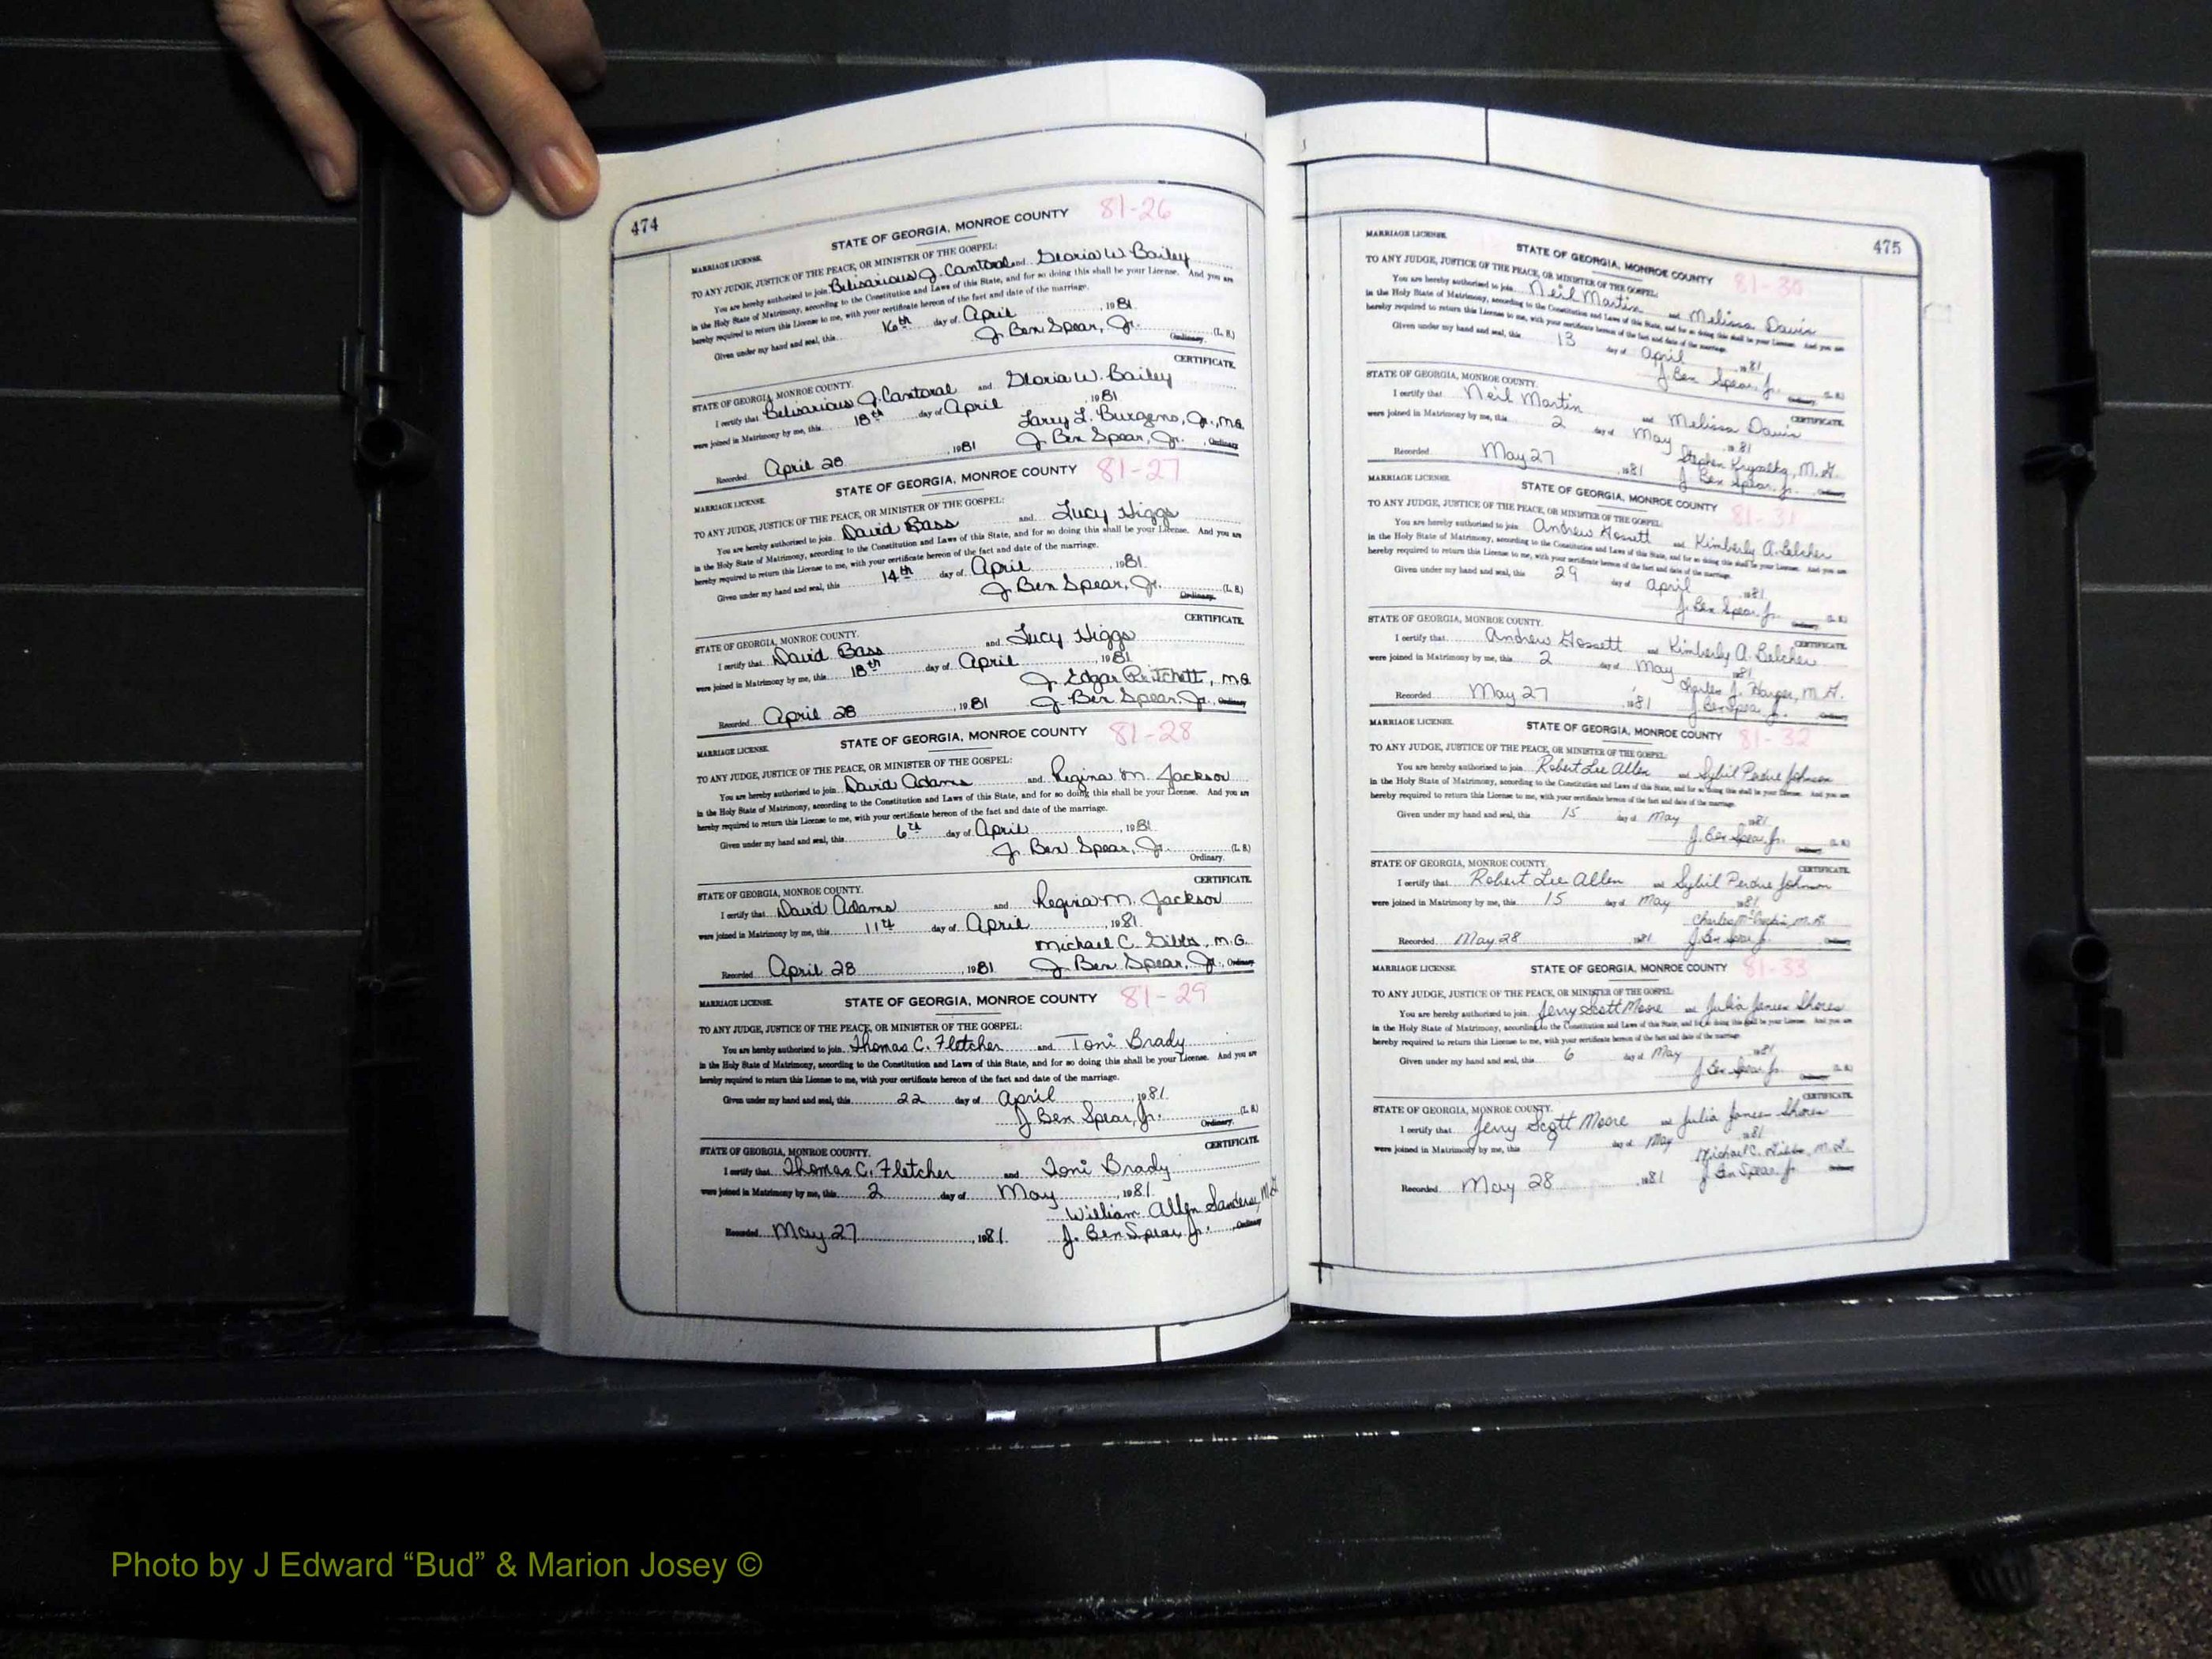 474
STATE OF GEORGIA, MONROE COUNTY 81-26
MARRIAGE LICENSE.
TO ANY JUDGE, JUSTICE OF THE PEACE, OR MINISTER OF THE GOSPEL:
You are hereby authorized to join Belisarious J. Cantoral and Gloria W. Bailey
in the Holy State of Matrimony, according to the Constitution and Laws of this State, and for so doing this shall be your License. And you are
hereby required to return this License to me, with your certificate hereon of the fact and date of the marriage.
Given under my hand and seal, this 16th day of April, 1981
J. Ben Spear, Jr. (L. S.)
Ordinary.
CERTIFICATE.
STATE OF GEORGIA, MONROE COUNTY.
I certify that Belisarious J. Cantoral and Gloria W. Bailey
were joined in Matrimony by me, this 18th day of April, 1981
Larry L. Burgeno, Jr., M.G.
Recorded April 28, 1981 J. Ben Spear, Jr., Ordinary
MARRIAGE LICENSE. STATE OF GEORGIA, MONROE COUNTY 81-27
TO ANY JUDGE, JUSTICE OF THE PEACE, OR MINISTER OF THE GOSPEL:
You are hereby authorized to join David Bass and Lucy Higgs
in the Holy State of Matrimony, according to the Constitution and Laws of this State, and for so doing this shall be your License. And you are
hereby required to return this License to me, with your certificate hereon of the fact and date of the marriage.
Given under my hand and seal, this 14th day of April, 1981
J. Ben Spear, Jr. (L. S.)
Ordinary.
CERTIFICATE.
STATE OF GEORGIA, MONROE COUNTY.
I certify that David Bass and Lucy Higgs
were joined in Matrimony by me, this 18th day of April, 1981
J. Edgar Pritchett, M.G.
Recorded April 28, 1981 J. Ben Spear, Jr., Ordinary
MARRIAGE LICENSE. STATE OF GEORGIA, MONROE COUNTY 81-28
TO ANY JUDGE, JUSTICE OF THE PEACE, OR MINISTER OF THE GOSPEL:
You are hereby authorized to join David Adams and Regina M. Jackson
in the Holy State of Matrimony, according to the Constitution and Laws of this State, and for so doing this shall be your License. And you are
hereby required to return this License to me, with your certificate hereon of the fact and date of the marriage.
Given under my hand and seal, this 6th day of April, 1981
J. Ben Spear, Jr. (L. S.)
Ordinary.
CERTIFICATE.
STATE OF GEORGIA, MONROE COUNTY.
I certify that David Adams and Regina M. Jackson
were joined in Matrimony by me, this 11th day of April, 1981
Michael C. Gibbs, M.G.
Recorded April 28, 1981 J. Ben Spear, Jr., Ordinary
MARRIAGE LICENSE. STATE OF GEORGIA, MONROE COUNTY 81-29
TO ANY JUDGE, JUSTICE OF THE PEACE, OR MINISTER OF THE GOSPEL:
You are hereby authorized to join Thomas C. Fletcher and Toni Brady
in the Holy State of Matrimony, according to the Constitution and Laws of this State, and for so doing this shall be your License. And you are
hereby required to return this License to me, with your certificate hereon of the fact and date of the marriage.
Given under my hand and seal, this 22 day of April, 1981
J. Ben Spear, Jr. (L. S.)
Ordinary.
CERTIFICATE.
STATE OF GEORGIA, MONROE COUNTY.
I certify that Thomas C. Fletcher and Toni Brady
were joined in Matrimony by me, this 2 day of May, 1981
William Allen Sanders, M.G.
Recorded May 27, 1981 J. Ben Spear, Jr., Ordinary
475
MARRIAGE LICENSE. STATE OF GEORGIA, MONROE COUNTY 81-30
TO ANY JUDGE, JUSTICE OF THE PEACE, OR MINISTER OF THE GOSPEL:
You are hereby authorized to join Neil Martin and Melissa Davis
in the Holy State of Matrimony, according to the Constitution and Laws of this State, and for so doing this shall be your License. And you are
hereby required to return this License to me, with your certificate hereon of the fact and date of the marriage.
Given under my hand and seal, this 13 day of April 1981
J. Ben Spear, Jr. (L. S.)
Ordinary.
STATE OF GEORGIA, MONROE COUNTY. CERTIFICATE.
I certify that Neil Martin and Melissa Davis
were joined in Matrimony by me, this 2 day of May 1981
Stephen M.G.
Recorded May 27 1981 J. Ben Spear, Jr. Ordinary
MARRIAGE LICENSE. STATE OF GEORGIA, MONROE COUNTY 81-31
TO ANY JUDGE, JUSTICE OF THE PEACE, OR MINISTER OF THE GOSPEL:
You are hereby authorized to join Andrew Gossett and Kimberly A. Belcher
in the Holy State of Matrimony, according to the Constitution and Laws of this State, and for so doing this shall be your License. And you are
hereby required to return this License to me, with your certificate hereon of the fact and date of the marriage.
Given under my hand and seal, this 29 day of April 1981
J. Ben Spear, Jr. (L. S.)
Ordinary.
STATE OF GEORGIA, MONROE COUNTY. CERTIFICATE.
I certify that Andrew Gossett and Kimberly A. Belcher
were joined in Matrimony by me, this 2 day of May 1981
Charles J. Harper, M.G.
Recorded May 27 1981 J. Ben Spear, Jr. Ordinary
MARRIAGE LICENSE. STATE OF GEORGIA, MONROE COUNTY 81-32
TO ANY JUDGE, JUSTICE OF THE PEACE, OR MINISTER OF THE GOSPEL:
You are hereby authorized to join Robert Lee Allen and Sybil Perdue Johnson
in the Holy State of Matrimony, according to the Constitution and Laws of this State, and for so doing this shall be your License. And you are
hereby required to return this License to me, with your certificate hereon of the fact and date of the marriage.
Given under my hand and seal, this 15 day of May 1981
J. Ben Spear, Jr. (L. S.)
Ordinary.
STATE OF GEORGIA, MONROE COUNTY. CERTIFICATE.
I certify that Robert Lee Allen and Sybil Perdue Johnson
were joined in Matrimony by me, this 15 day of May 1981
Charles M.G.
Recorded May 28 1981 J. Ben Spear Jr. Ordinary
MARRIAGE LICENSE. STATE OF GEORGIA, MONROE COUNTY 81-33
TO ANY JUDGE, JUSTICE OF THE PEACE, OR MINISTER OF THE GOSPEL:
You are hereby authorized to join Jerry Scott Moore and Julia Janeen Shores
in the Holy State of Matrimony, according to the Constitution and Laws of this State, and for so doing this shall be your License. And you are
hereby required to return this License to me, with your certificate hereon of the fact and date of the marriage.
Given under my hand and seal, this 6 day of May 1981
J. Ben Spear Jr. (L. S.)
Ordinary.
CERTIFICATE.
STATE OF GEORGIA, MONROE COUNTY.
I certify that Jerry Scott Moore and Julia Janeen Shores
were joined in Matrimony by me, this 9 day of May 1981
Michael C. Gibbs, M.G.
Recorded May 28 1981 J. Ben Spear, Jr. Ordinary
Photo by J Edward “Bud” & Marion Josey ©